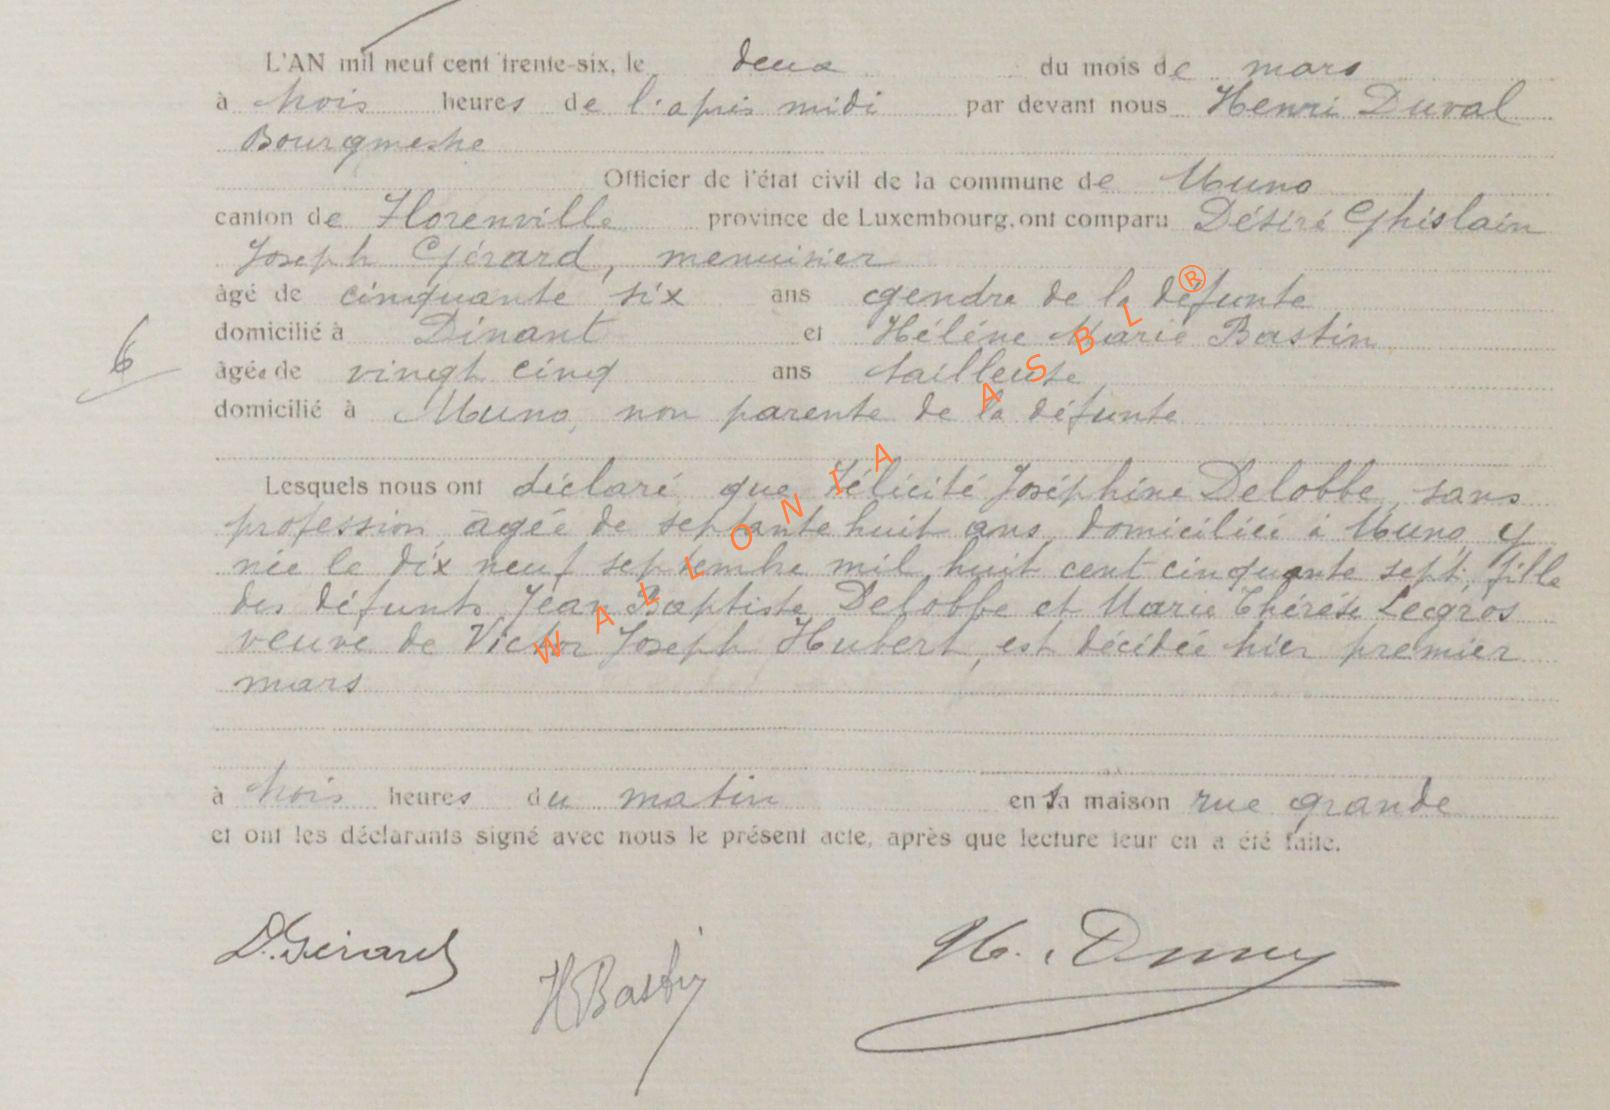 L'AN mil neuf cent trente-six, le deux du mois de mars
à trois heures de l'après midi par devant nous Henri Duval
Bourgmestre
Officier de l'état civil de la commune de Muno
canton de Florenville province de Luxembourg, ont comparu Désiré Ghislain
Joseph Gérard, menuisier
âgé de cinquante six ans gendre de la défunte
domicilié à Dinant et Hélène Marie Bastin
âgée de vingt cinq ans tailleuse
6
domicilié à Muno, non parente de la défunte
Lesquels nous ont déclaré que Félicité Joséphine Delobbe, sans
profession, âgée de septante huit ans, domiciliée à Muno, y
née le dix neuf septembre mil huit cent cinquante sept, fille
des défunts Jean Baptiste Delobbe et Marie Thérèse Legros
veuve de Victor Joseph Hubert, est décédée hier premier
mars
à trois heures du matin en sa maison rue grande
et ont les déclarants signé avec nous le présent acte, après que lecture leur en a été faite.
D. Gérard
H Bastin
H. Duval
WALLONIA ASBL ®